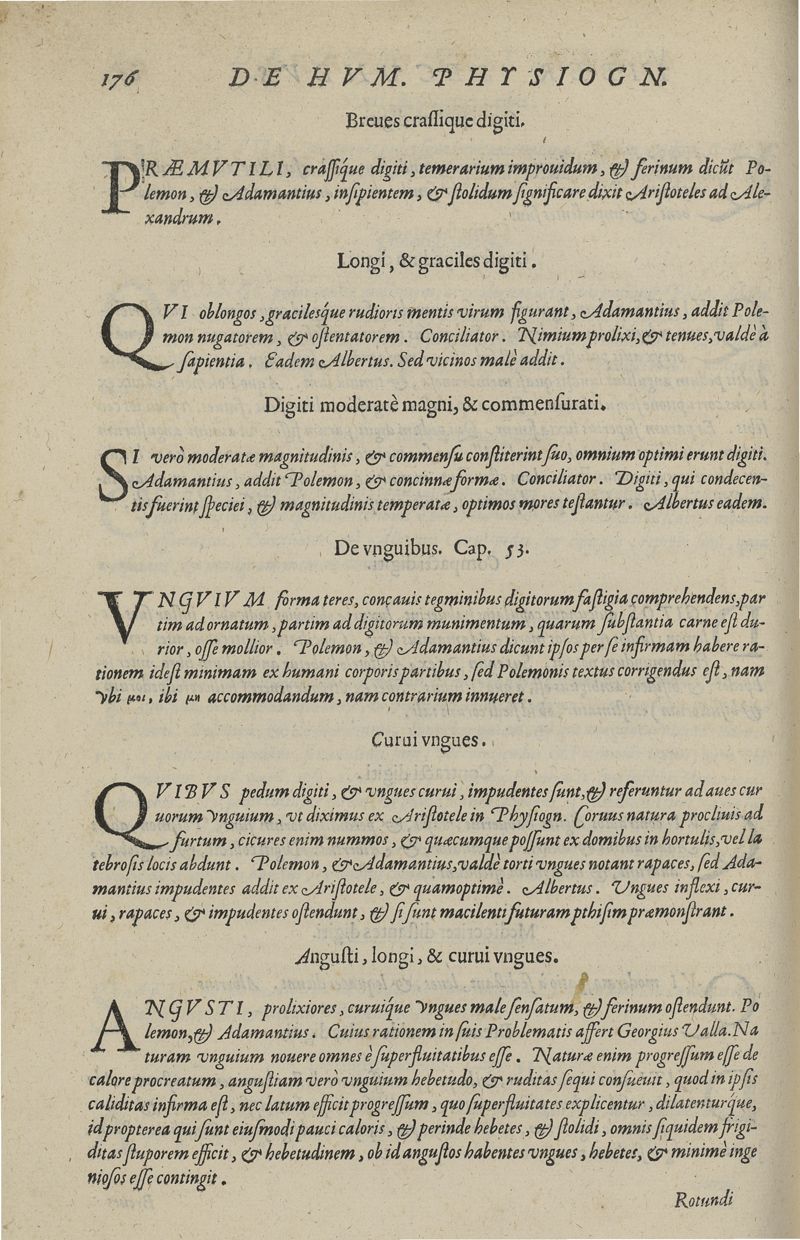 176 DE HVM. PHYSIOGN.
Breues craſſique digiti.
PRÆMVTILI, craſſiq́ue digiti, temerarium improuidum, & ferinum dicũt Po-
lemon, & Adamantius, inſipientem, & ſtolidum ſignificare dixit Ariſtoteles ad Ale-
xandrum.
Longi, & graciles digiti.
QVI oblongos, gracileſq́ue rudioris mentis virum figurant, Adamantius, addit Pole-
mon nugatorem, & oſtentatorem. Conciliator. Nimium prolixi, & tenues, valdè à
ſapientia. Eadem Albertus. Sed vicinos malè addit.
Digiti moderatè magni, & commenſurati.
SI verò moderatæ magnitudinis, & commenſu conſtiterint ſuo, omnium optimi erunt digiti.
Adamantius, addit Polemon, & concinnæ formæ. Conciliator. Digiti, qui condecen-
tis fuerint ſpeciei, & magnitudinis temperatæ, optimos mores teſtantur. Albertus eadem.
De vnguibus. Cap. 53.
VNGVIVM forma teres, concauis tegminibus digitorum faſtigia comprehendens, par
tim ad ornatum, partim ad digitorum munimentum, quarum ſubſtantia carne eſt du-
rior, oſſe mollior. Polemon, & Adamantius dicunt ipſos per ſe infirmam habere ra-
tionem ideſt minimam ex humani corporis partibus, ſed Polemonis textus corrigendus eſt, nam
vbi μοι, ibi μη accommodandum, nam contrarium innueret.
Curui vngues.
QVIBVS pedum digiti, & vngues curui, impudentes ſunt, & referuntur ad aues cur
uorum vnguium, vt diximus ex Ariſtotele in Phyſiogn. Coruus natura procliuis ad
furtum, cicures enim nummos, & quæcumque poſſunt ex domibus in hortulis, vel la
tebroſis locis abdunt. Polemon, & Adamantius, valdè torti vngues notant rapaces, ſed Ada-
mantius impudentes addit ex Ariſtotele, & quamoptimè. Albertus. Vngues inflexi, cur-
ui, rapaces, & impudentes oſtendunt, & ſi ſunt macilenti futuram pthiſim præmonſtrant.
Anguſti, longi, & curui vngues.
ANGVSTI, prolixiores, curuiq́ue vngues male ſenſatum, & ferinum oſtendunt. Po
lemon, & Adamantius. Cuius rationem in ſuis Problematis affert Georgius Valla. Na
turam vnguium nouere omnes è ſuperfluitatibus eſſe. Naturæ enim progreſſum eſſe de
calore procreatum, anguſtiam verò vnguium hebetudo, & ruditas ſequi conſueuit, quod in ipſis
caliditas infirma eſt, nec latum efficit progreſſum, quo ſuperfluitates explicentur, dilatenturque,
id propterea qui ſunt eiuſmodi pauci caloris, & perinde hebetes, & ſtolidi, omnis ſiquidem frigi-
ditas ſtuporem efficit, & hebetudinem, ob id anguſtos habentes vngues, hebetes, & minimè inge
nioſos eſſe contingit.
Rotundi